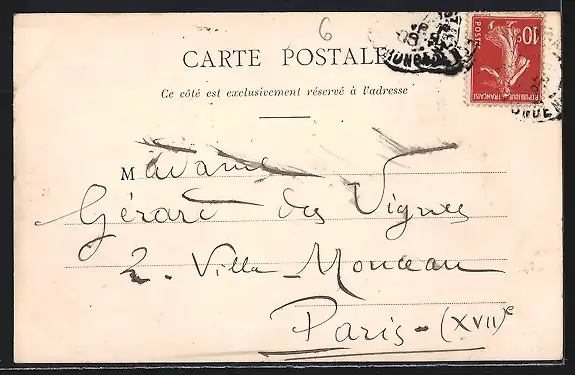 6
CARTE POSTALE
Ce côté est exclusivement réservé à l'adresse
Madame
Gérard des Vignes
2. Villa Monceau
Paris - (XVII)e
10c
POSTES
REPUBLIQUE FRANÇAISE